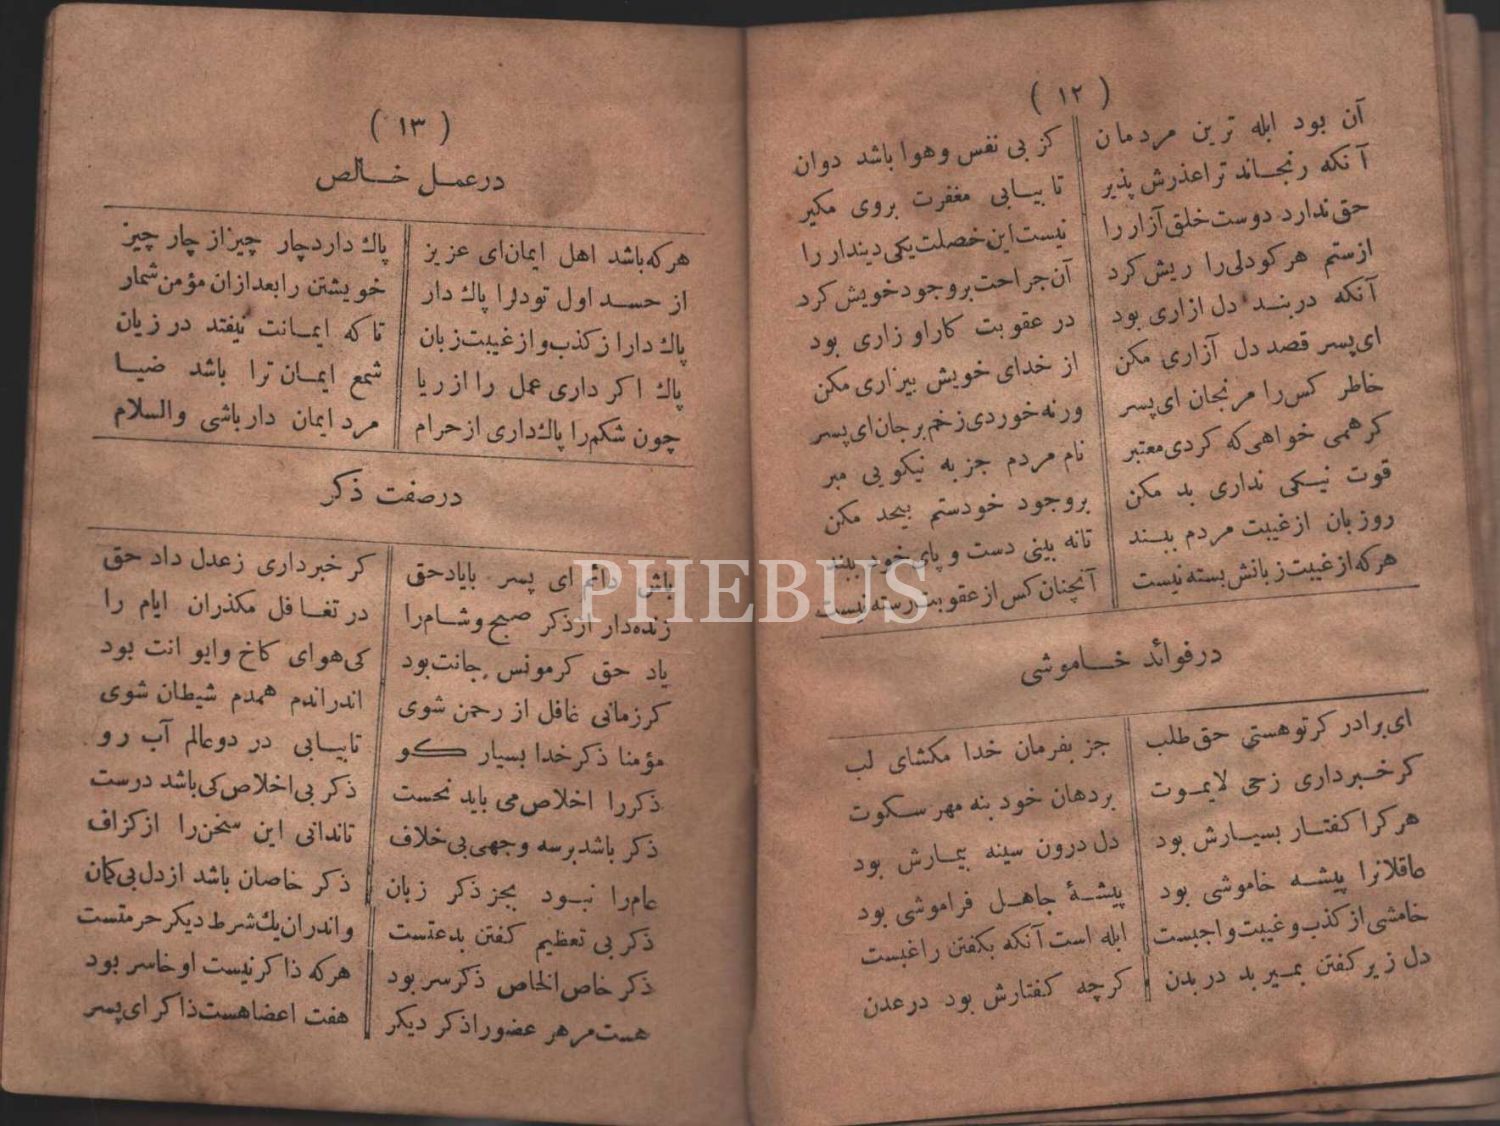 ( ١٢ )
آن بود ابله ترین مردمان کز بی نفس وهوا باشد دوان
آنکه رنجاند ترا عذرش پذیر تا بیابی مغفرت بروی مکیر
حق ندارد دوست خلق آزار را نیست این خصلت یکی دیندار را
ازستم هرکودلی را ریش کرد آن جراحت بروجود خویش کرد
آنکه دربند دل ازاری بود در عقوبت کاراو زاری بود
ای پسر قصد دل آزاری مکن از خدای خویش بیزاری مکن
خاطر کس را مرنجان ای پسر ورنه خوردی زخم برجان ای پسر
کرهمی خواهی که کردی معتبر نام مردم جز به نیکویی مبر
قوت نیکی نداری بد مکن بروجود خودستم بیحد مکن
روزبان ازغیبت مردم ببند تانه بینی دست و پای خود ببند
هرکه ازغیبت زبانش بسته نیست آنچنان کس از عقوبت رسته نیست
درفوائد خاموشی
ای برادر کرتو هستی حق طلب جز بفرمان خدا مکشای لب
کر خبرداری زحی لایموت بردهان خود بنه مهر سکوت
هرکرا کفتار بسیارش بود دل درون سینه بیمارش بود
عاقلانرا پیشه خاموشی بود پیشهٔ جاهل فراموشی بود
خامشی از کذب و غیبت واجبست ابله است آنکه بکفتن راغبست
دل زپر کفتن بمیرد در بدن کرچه کفتارش بود در عدن
( ١٣ )
درعمل خالص
هرکه باشد اهل ایمان ای عزیز پاك دارد چار چیز از چار چیز
از حسد اول تودلرا پاك دار خویشتن را بعدازان مؤمن شمار
پاك دار از کذب و از غیبت زبان تا که ایمانت نیفتد در زیان
پاك اکر داری عمل را از ریا شمع ایمان ترا باشد ضیا
چون شکم را پاك داری از حرام مرد ایمان دار باشی والسلام
درصفت ذکر
باش دائم ای پسر بایاد حق کر خبرداری زعدل داد حق
زنده دار از ذکر صبح و شام را در تغافل مکذران ایام را
یاد حق کر مونس جانت بود کی هوای کاخ وایوانت بود
کر زمانی غافل از رحمن شوی اندراندم همدم شیطان شوی
مؤمنا ذکر خدا بسیار کو تا بیابی در دوعالم آب رو
ذکررا اخلاص می باید نخست ذکر بی اخلاص کی باشد درست
ذکر باشد برسه وجهی بی خلاف تاندانی این سخن را از کزاف
عام را نبود بجز ذکر زبان ذکر خاصان باشد از دل بی کمان
ذکر بی تعظیم کفتن بدعتست و اندران یك شرط دیکر حرمتست
ذکر خاص الخاص ذکر سر بود هرکه ذاکر نیست او خاسر بود
هست مر هر عضورا ذکر دیکر هفت اعضا هست ذاکر ای پسر
PHEBUS